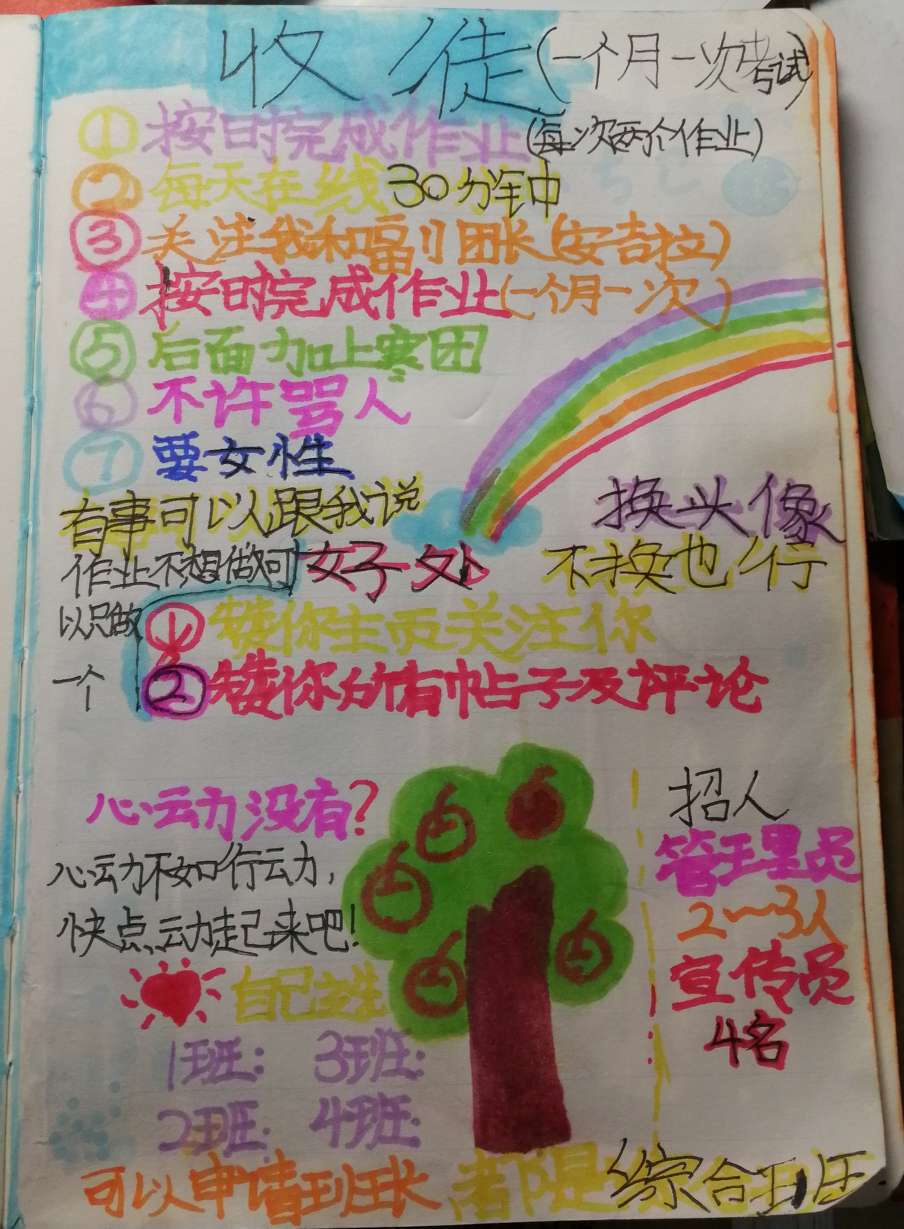 收徒(一个月一次考试)
①按时完成作业(每次两个作业)
②每天在线30分钟
③关注我和副团长(安吉拉)
④按时完成作业(一个月一次)
⑤后面加上寒团
⑥不许骂人
⑦要女性
有事可以跟我说
换头像
不换也行
作业不想做可以只做一个
好处
①赞你主页关注你
②赞你的所有帖子及评论
心动没有?
心动不如行动,
快点动起来吧!
自己主生
1班: 3班:
2班: 4班:
可以申请班长 都是综合班
招人
管理员
2~3人
宣传员
4名